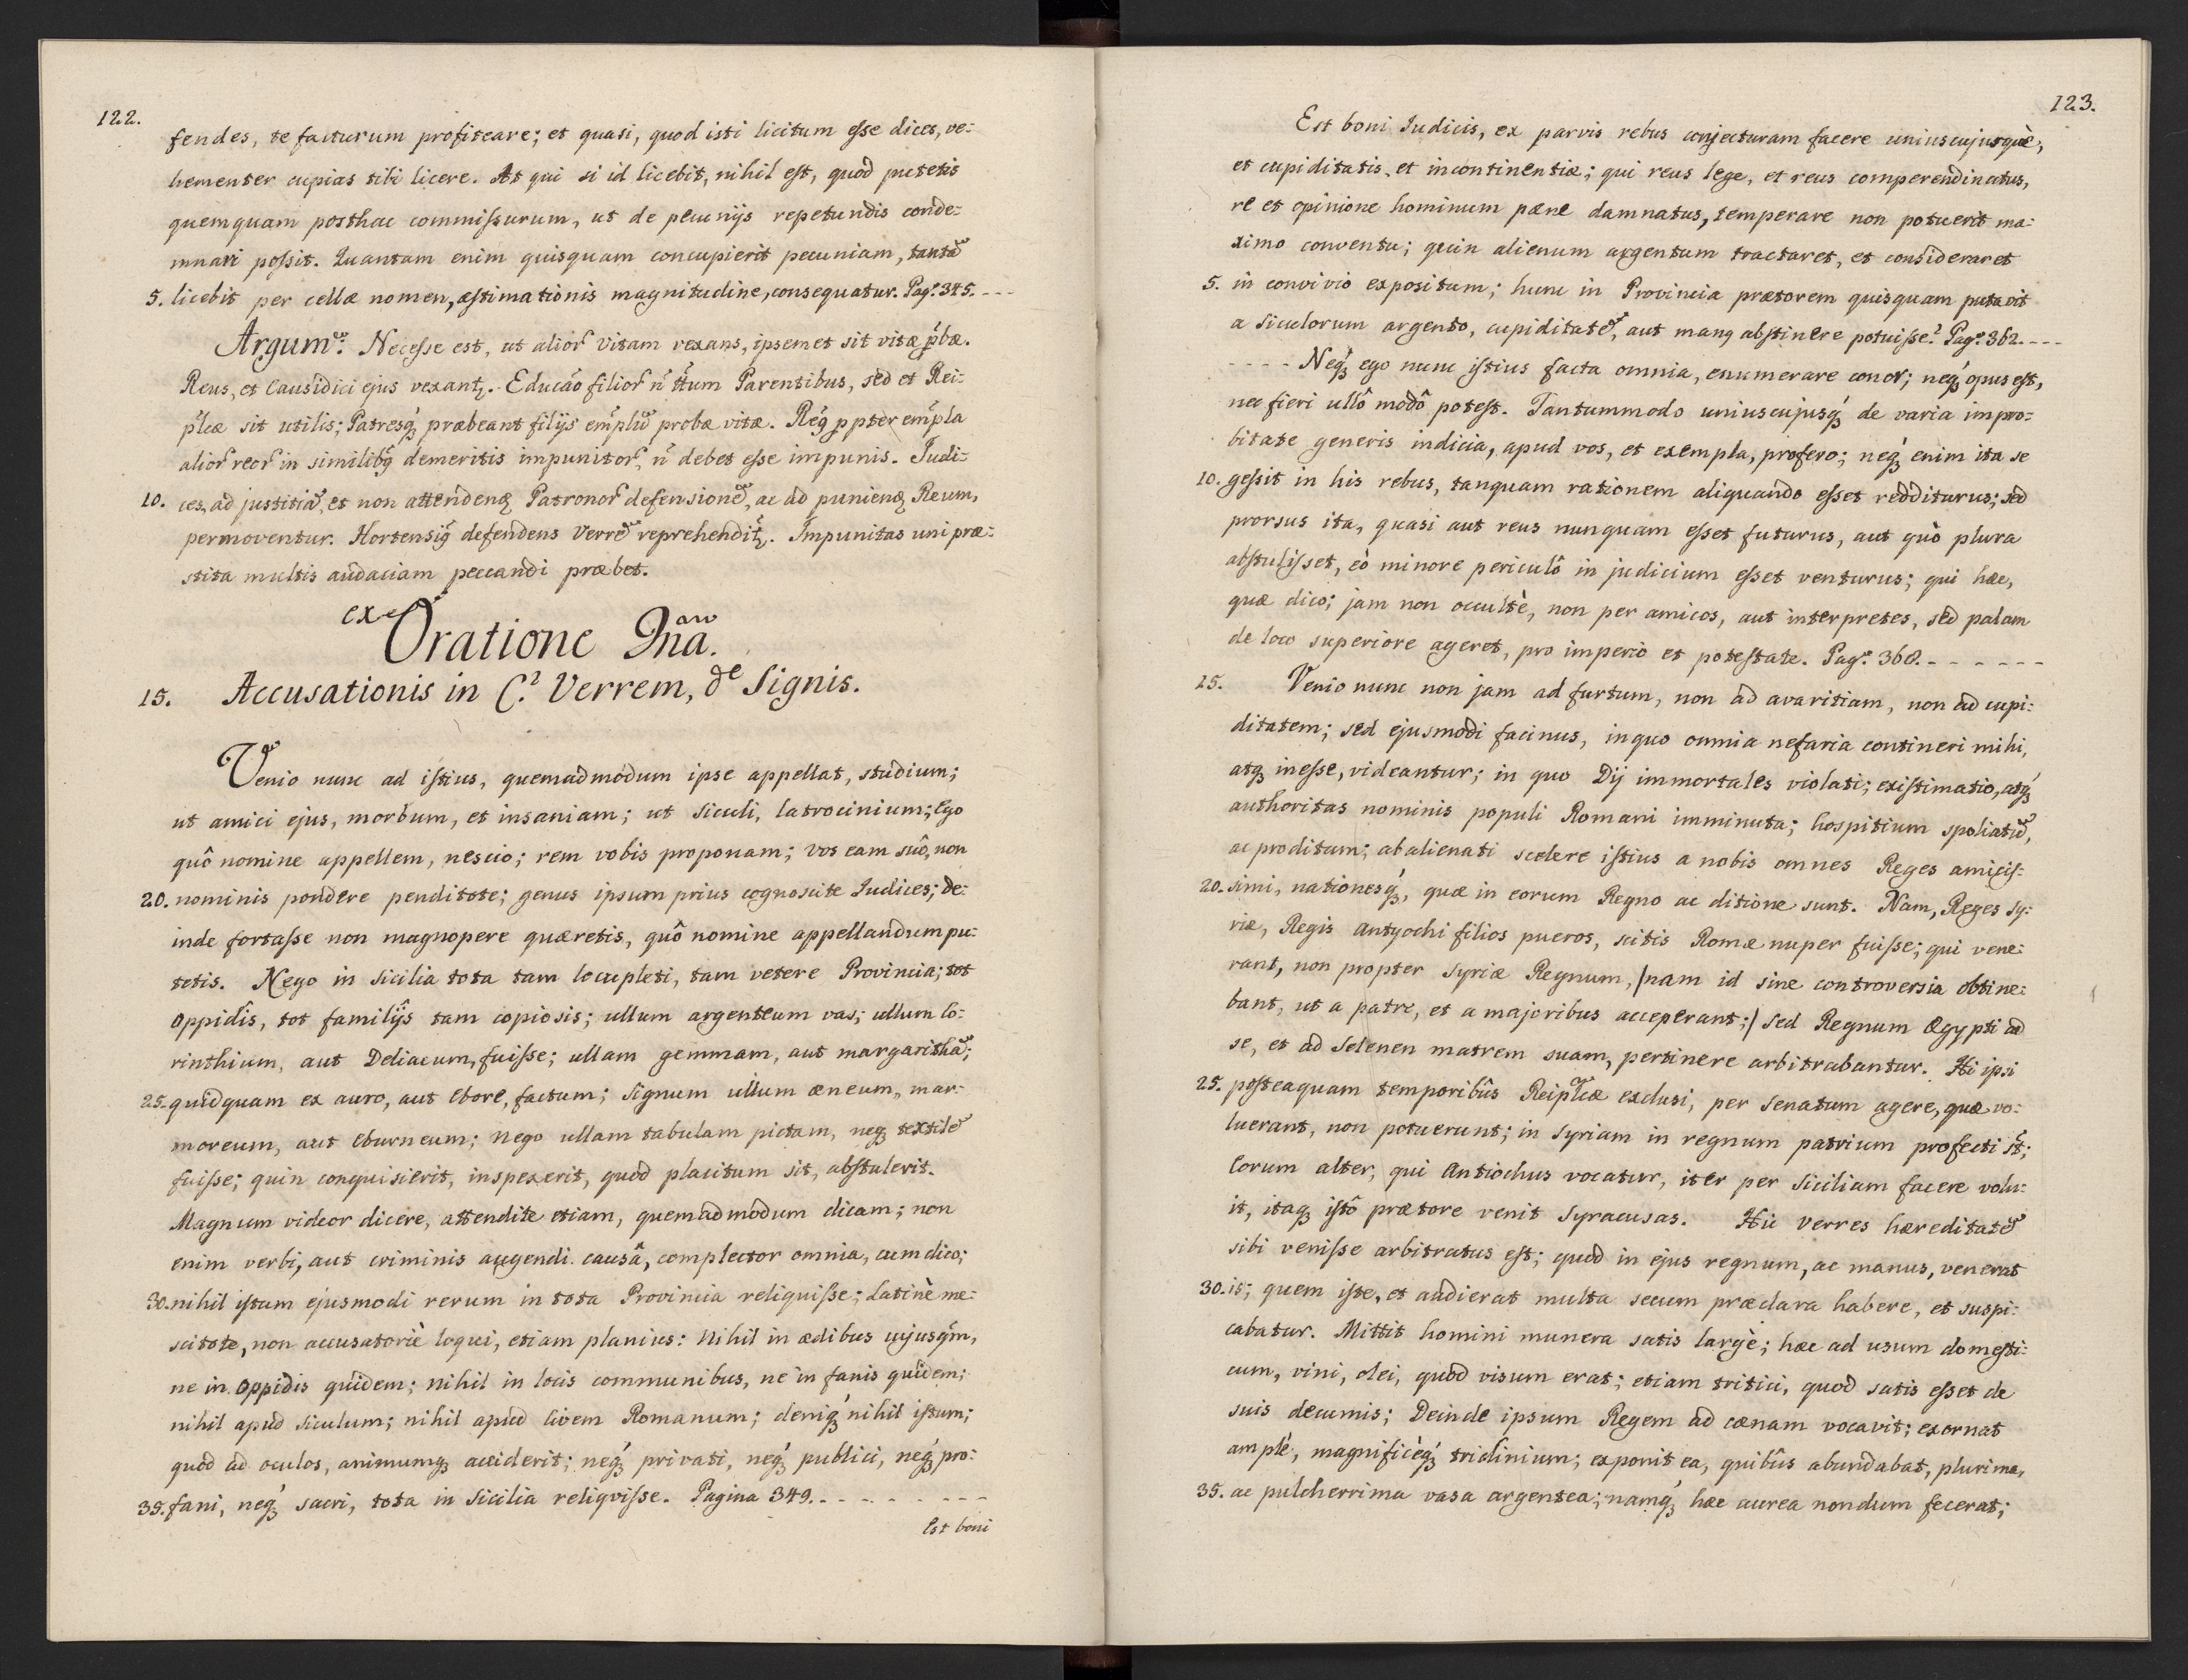 122.
fendes, te facturum profiteare; et quasi, quod isti licitum esse dices, ve:
hementer cupias tibi licere. At qui si id licebit, nihil est, quod putetis
quemquam posthac commissurum, ut de pecunijs repetundis conde:
mnari possit. Quantam enim quisquam concupierit pecuniam, tantã
5. licebit per cellæ nomen, æstimationis magnitudine, consequatur. Pag: 345. - - -
Argum: Necesse est, ut alior vitam vexans, ipsemet sit vitæ pbæ.
Reus, et Causidici ejus vexant. Educão filior ñ ttum Parentibus, sed et Rei:
plcæ sit utilis; Patresq præbeant filijs emplũ probæ vitæ. Reg ppter empla
alior reor in similibq demeritis impunitor, ñ debet esse impunis. Judi:
10. ces, ad justitiã, et non attendenq Patronor defensionẽ, ac ad punienq Reum,
permoventur. Hortensiq defendens Verrẽ reprehendit. Impunitas uni præ:
stita multis audaciam peccandi præbet.
ex
Oratione 9na.
15. Accusationis in C. Verrem, de Signis.
Venio nunc ad istius, quemadmodum ipse appellat, studium;
ut amici ejus, morbum, et insaniam; ut Siculi, latrocinium; Ego
quô nomine appellem, nescio; rem vobis proponam; vos eam suô, non
20. nominis pondere penditote; genus ipsum prius cognoscite Judices; de:
inde fortasse non magnopere quæretis, quô nomine appellandum pu:
tetis. Nego in Sicilia tota tam locupleti, tam vetere Provincia; tot
Oppidis, tot familijs tam copiosis; ullum argenteum vas; ullum Co:
rinthium, aut Deliacum, fuisse; ullam gemmam, aut margarithã;
25. quidquam ex auro, aut Ebore, factum; signum ullum æneum, mar:
moreum, aut Eburneum; nego ullam tabulam pictam, neq textilẽ
fuisse; quin conquisierit, inspexerit, quod placitum sit, abstulerit.
Magnum videor dicere, attendite etiam, quemadmodum dicam; non
enim verbi, aut criminis augendi causâ, complector omnia, cum dico;
30. nihil istum ejusmodi rerum in tota Provincia reliquisse; Latinè me:
scitote, non accusatoriè loqui, etiam planius: Nihil in ædibus cujusqm,
ne in Oppidis quidem; nihil in locis communibus, ne in fanis quidem;
nihil apud Siculum; nihil apud Civem Romanum; deniq nihil istum;
quod ad oculos, animumq acciderit; neq privati, neq publici, neq pro:
35. fani, neq sacri, tota in Sicilia reliqvisse. Pagina 349. - - - - - - - -
Est boni
123.
Est boni Judicis, ex parvis rebus conjecturam facere uniuscujusquè,
et cupiditatis, et incontinentiæ; qui reus lege, et reus comperendinatus,
re et opinione hominum pæne damnatus, temperare non potuerit ma:
ximo conventu; quin alienum argentum tractaret, et consideraret
5. in convivio expositum; hunc in Provincia prætorem quisquam putavit
a Siculorum argento, cupiditatẽ, aut manq abstinere potuisse? Pag: 362. - - - -
- - - - Neq ego nunc istius facta omnia, enumerare conor; neq opus est,
nec fieri ullô modô potest. Tantummodo uniuscujusq de varia impro:
bitate generis indicia, apud vos, et exempla, profero; neq enim ita se
10. gessit in his rebus, tanquam rationem aliquando esset redditurus; sed
prorsus ita, quasi aut reus nunquam esset futurus, aut quò plura
abstulisset, eò minore periculô in judicium esset venturus; qui hæc,
quæ dico; jam non occultè, non per amicos, aut interpretes, sed palam
de loco superiore ageret, pro imperio et potestate. Pag: 368. - - - - - -
15. Venio nunc non jam ad furtum, non ad avaritiam, non ad cupi:
ditatem; sed ejusmodi facinus, in quo omnia nefaria contineri mihi,
atq inesse, videantur; in quo Dij immortales violati; existimatio, atq
authoritas nominis populi Romani imminuta; hospitium spoliatũ,
ac proditum; abalienati scelere istius a nobis omnes Reges amicis:
20. simi, nationesq, quæ in eorum Regno ac ditione sunt. Nam, Reges Sy:
riæ, Regis Antyochi filios pueros, scitis Romæ nuper fuisse; qui vene:
rant, non propter Syriæ Regnum, /nam id sine controversia obtine:
bant, ut a patre, et a majoribus acceperant;/ sed Regnum Ægypti ad
se, et ad Selenen matrem suam, pertinere arbitrabantur. Hi ipsi
25. posteaquam temporibûs Reiplcæ exclusi, per Senatum agere, quæ vo:
luerant, non potuerunt; in Syriam in regnum patrium profecti st;
Eorum alter, qui Antiochus vocatur, iter per Siciliam facere volu:
it, itaq istô prætore venit Syracusas. Hic Verres hæreditatẽ
sibi venisse arbitratus est; quod in ejus regnum, ac manus, venerat
30. is; quem iste, et audierat multa secum præclara habere, et suspi:
cabatur. Mittit homini munera satis largè; hæc ad usum domesti:
cum, vini, olei, quod visum erat; etiam tritici, quod satis esset de
suis decumis; Deinde ipsum Regem ad cænam vocavit; exornat
amplè, magnificèq triclinium; exponit ea, quibûs abundabat, plurima,
35. ac pulcherrima vasa argentea; namq hæc aurea nondum fecerat;